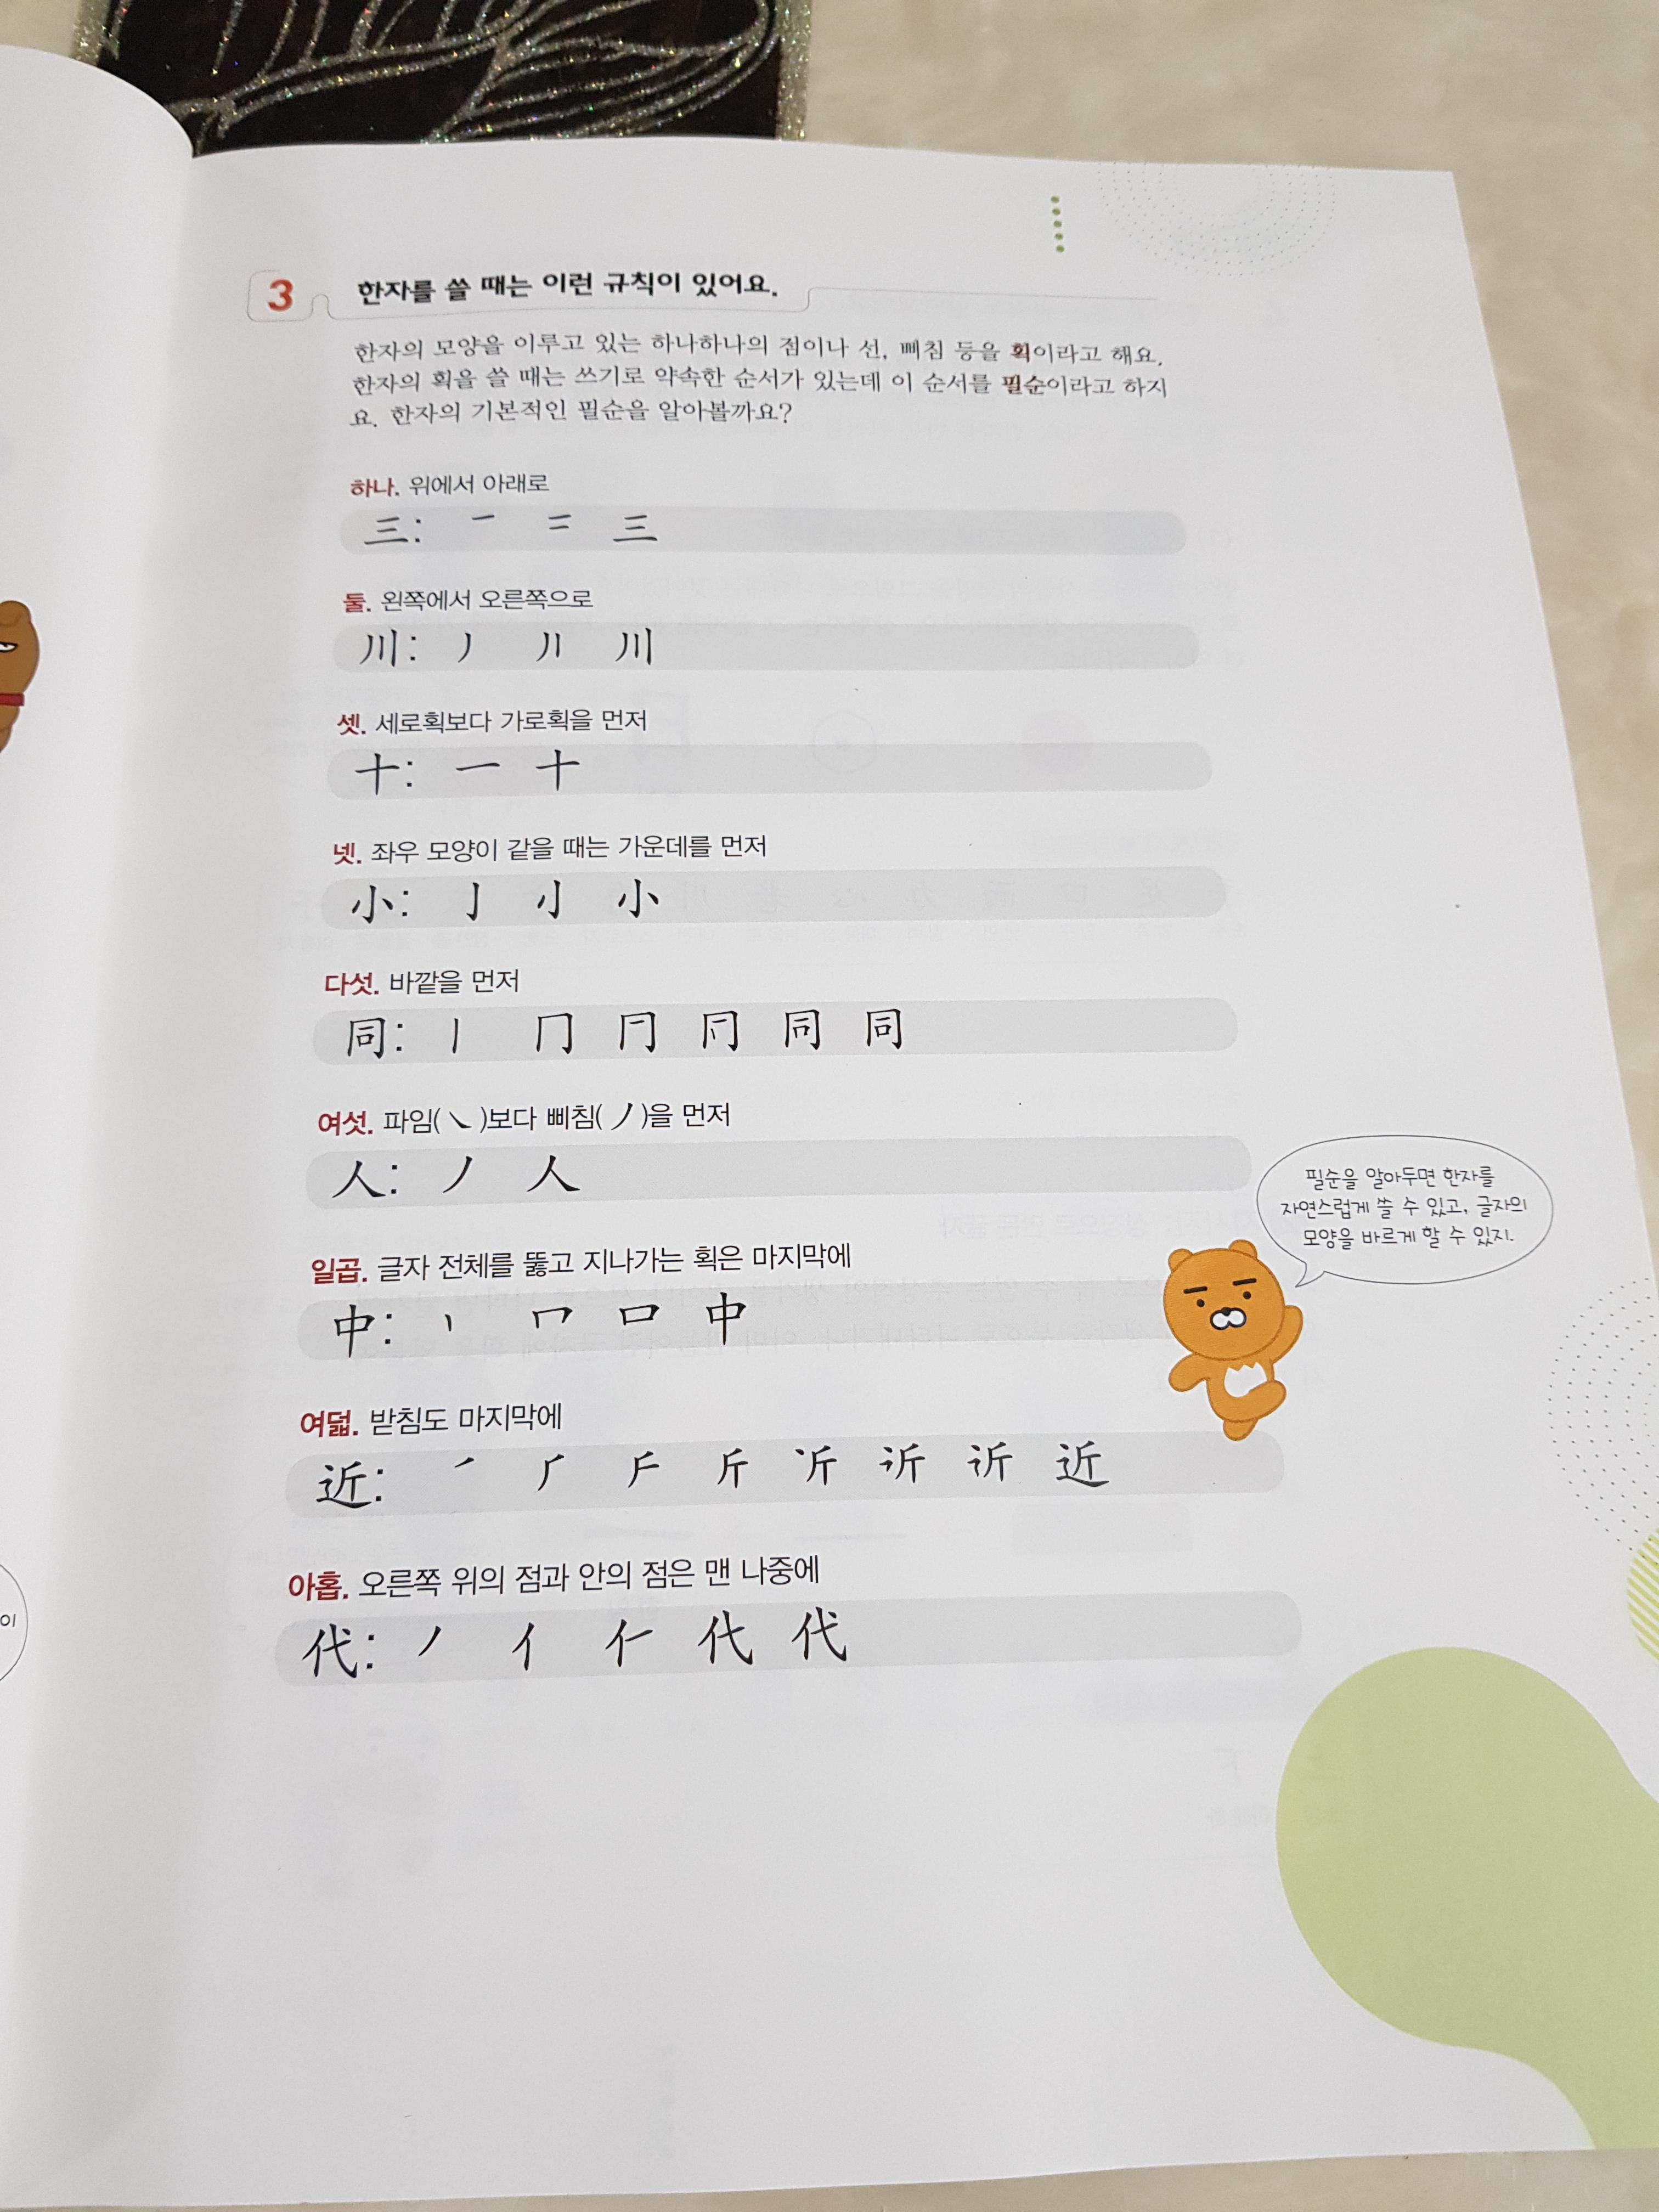 3 한자를 쓸 때는 이런 규칙이 있어요.
한자의 모양을 이루고 있는 하나하나의 점이나 선, 삐침 등을 획이라고 해요.
한자의 획을 쓸 때는 쓰기로 약속한 순서가 있는데 이 순서를 필순이라고 하지
요. 한자의 기본적인 필순을 알아볼까요?
하나. 위에서 아래로
三: 一 二 三
둘. 왼쪽에서 오른쪽으로
川: 丿 川
셋. 세로획보다 가로획을 먼저
十: 一 十
넷. 좌우 모양이 같을 때는 가운데를 먼저
小: 亅 小
다섯. 바깥을 먼저
同: 丨 冂 同 同
여섯. 파임(㇏)보다 삐침(丿)을 먼저
人: 丿 人
일곱. 글자 전체를 뚫고 지나가는 획은 마지막에
中: 丨 口 中
여덟. 받침도 마지막에
近: 斤 近
아홉. 오른쪽 위의 점과 안의 점은 맨 나중에
代: 丿 亻 代
필순을 알아두면 한자를
자연스럽게 쓸 수 있고, 글자의
모양을 바르게 할 수 있지.
이